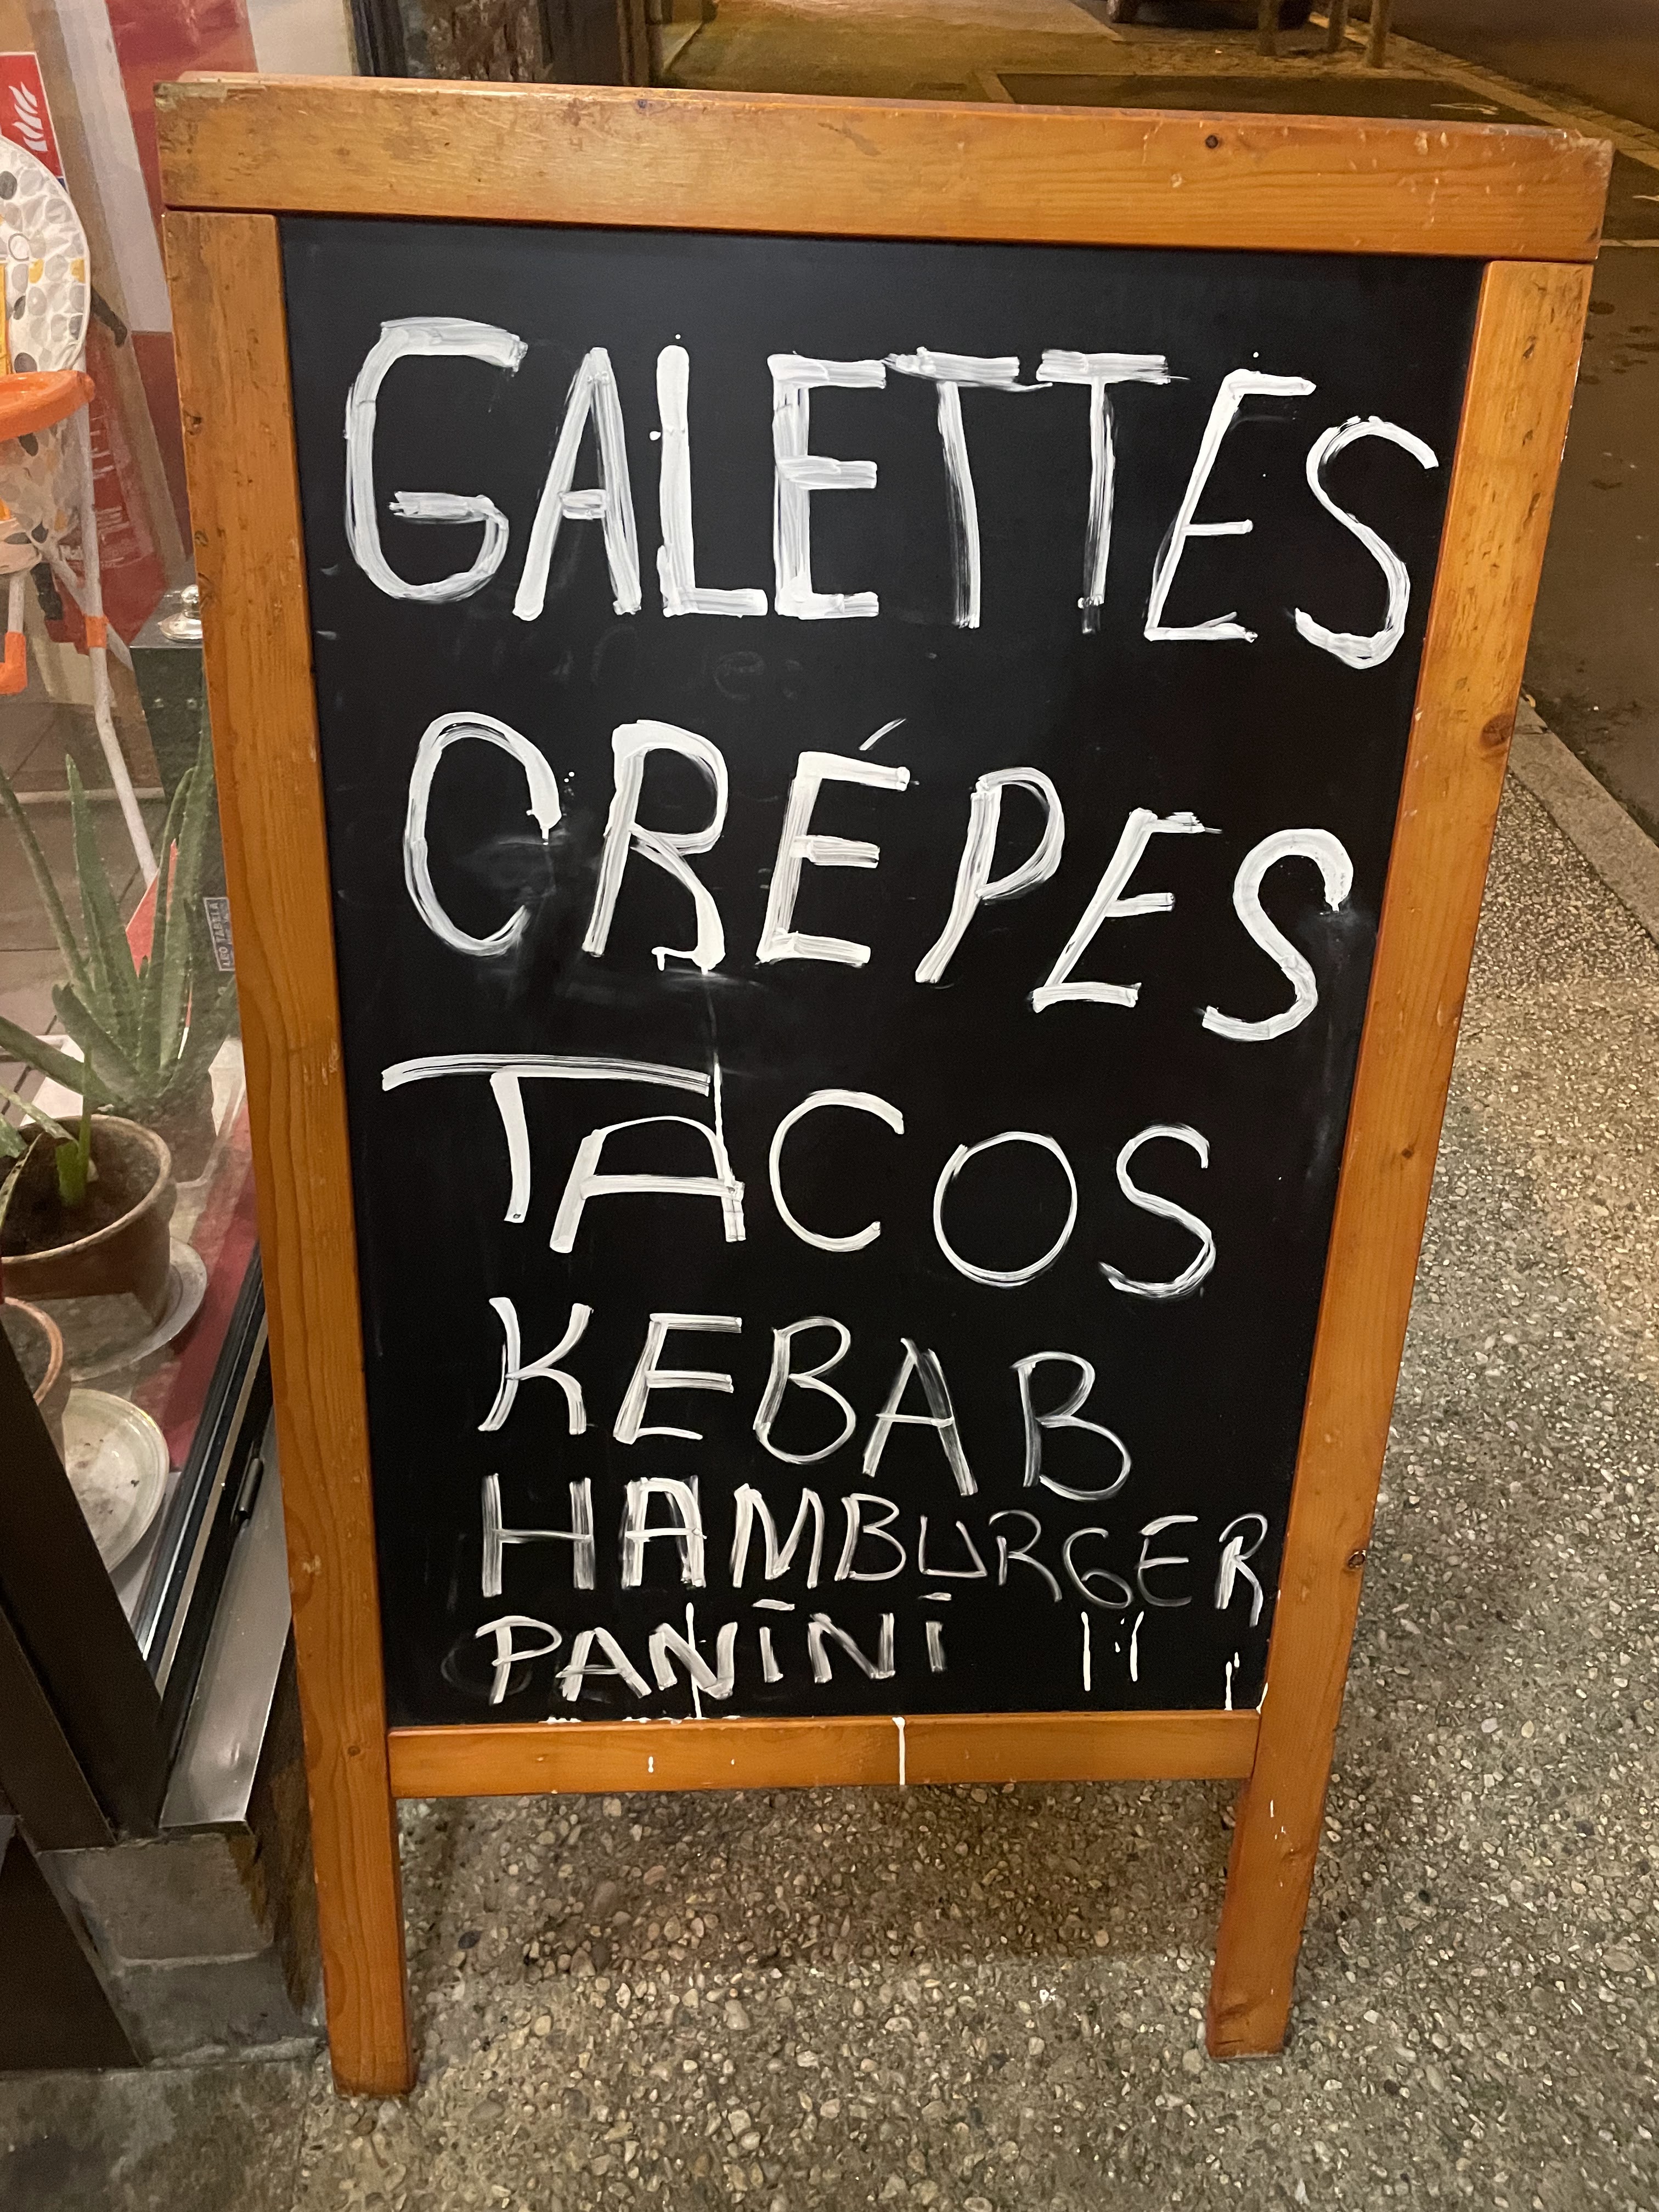 GALETTES
CRÉPES
TACOS
KEBAB
HAMBURGER
PANINI
LEO TABELA